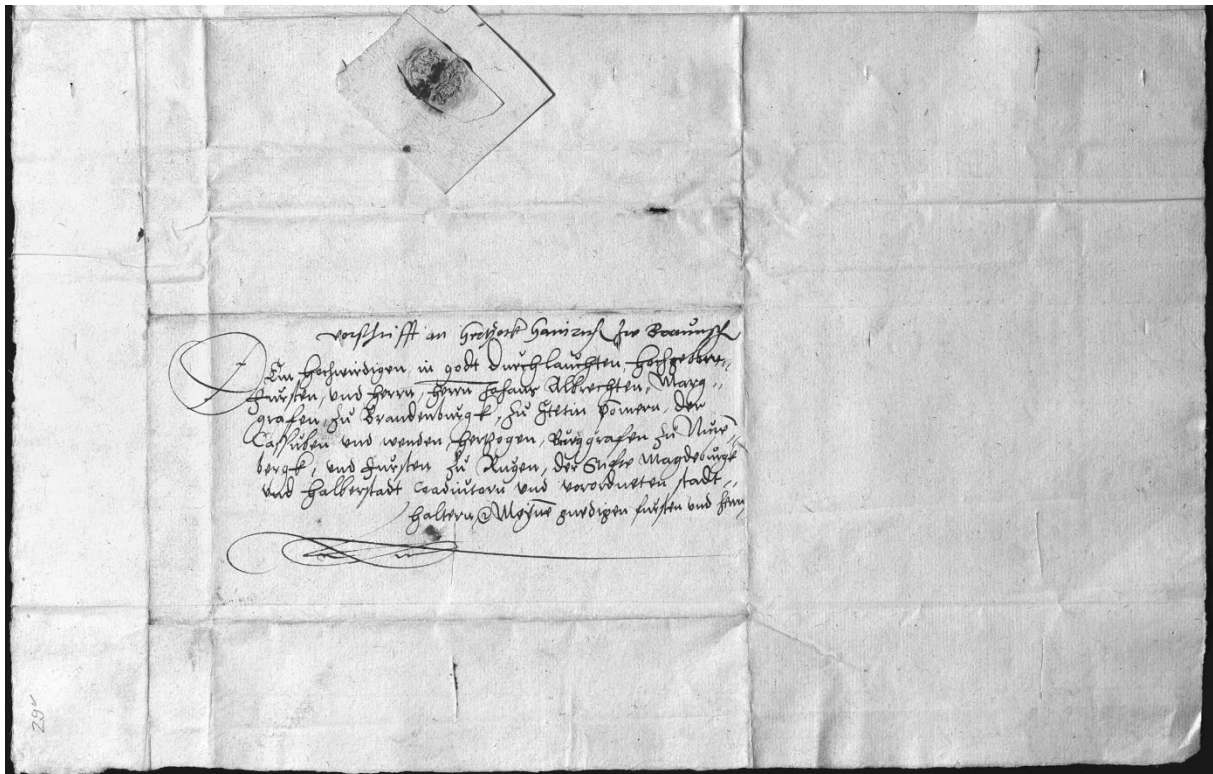 vorschrifft an Hertzock Hainrich zw Braunsch
Dem Hochwirdigen, in godt Durchlauchten, Hochgebor¨
Fursten, und herrn, Herrn Johans Albrechten, Marg¨
grafen, zu Brandenburgk, zu Stetin Pomern, der
Cassuben und wenden, Hertzogen, Burggrafen zu Nurn¨
bergk, und Fursten zu Rugen, der Stiffte Magdeburgk
und Halberstadt Coadiutorn und verordneten stadt¨
haltern, Meyne gnedigen fursten und hern
29v